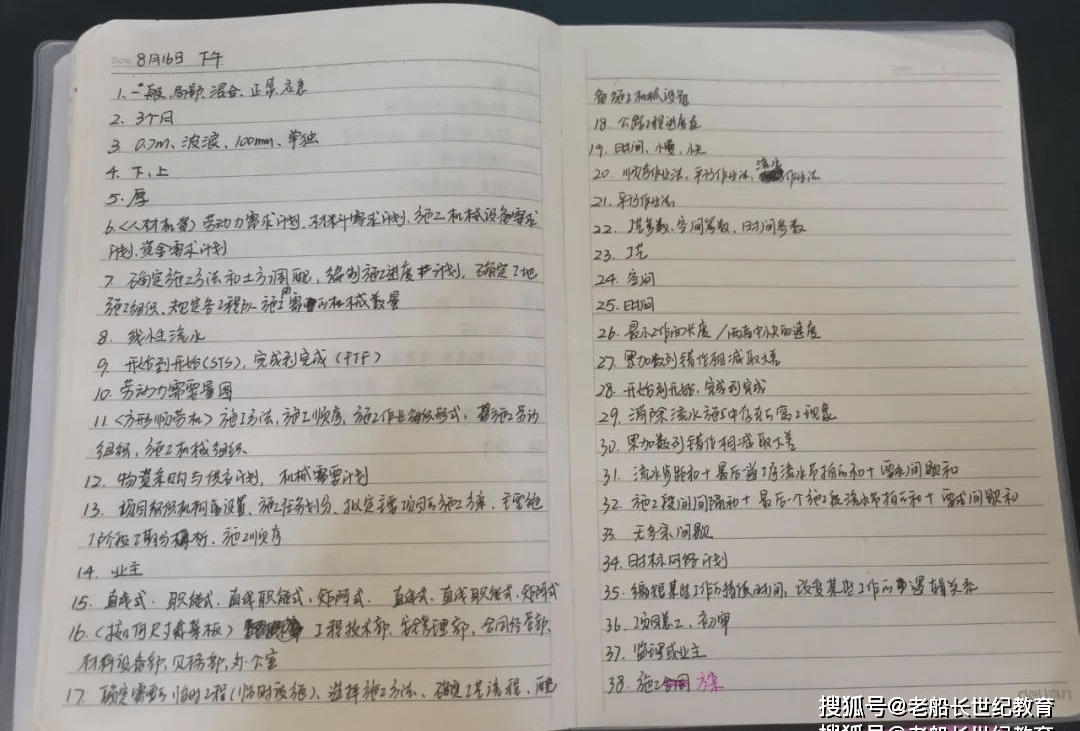 Date 8月16日 下午
1. 一般、局部、混合、正常、应急
2. 3个月
3. 0.7m、波浪、100mm、单独
4. 下、上
5. 厚
6. <人材机资> 劳动力需求计划、材料需求计划、施工机械设备需求
计划、资金需求计划
7. 确定施工方法和土方调配, 编制施工进度计划, 确定工地
施工组织、规定各工程队施工所需的机械数量
8. 线性流水
9. 开始到开始(STS), 完成到完成(FTF)
10. 劳动力需要量图
11. <方形顺劳机> 施工方法, 施工顺序, 施工作业组织形式, 施工劳动
组织, 施工机械组织
12. 物资采购与供应计划, 机械需要计划
13. 项目组织机构设置、施工任务划分、拟定主要项目的施工方案、主要施
工阶段工期分析、施工顺序
14. 业主
15. 直线式、职能式、直线职能式、矩阵式. 直线式、直线职能式、矩阵式
16. 工程技术部、安保部, 合同经营部、
材料设备部, 财务部, 办公室
17. 确定需要的临时工程(临时设施)、选择施工方法、确定工艺流程、配
备施工机械设备
18. 公路工程进度表
19. 时间、慢、快
20. 顺序作业法, 平行作业法, 流水作业法
21. 平行作业法
22. 工艺参数、空间参数, 时间参数
23. 工艺
24. 空间
25. 时间
26. 最小工作面长度/两者中快的速度
27. 累加数列错位相减取大差
28. 开始到开始, 完成到完成
29. 消除流水施工中存在的窝工现象
30. 累加数列错位相减取大差
31. 流水步距和+最后道工序流水节拍的和+要求间歇和
32. 施工段间间隔和+最后一个施工段流水节拍的和+要求间歇和
33. 无多余间歇
34. 时标网络计划
35. 缩短某些工作的持续时间, 改变某些工作的逻辑关系
36. 项目总工, 初审
37. 监理或业主
38. 施工方案
deli
搜狐号@老船长世纪教育
搜狐号@老船长世纪教育